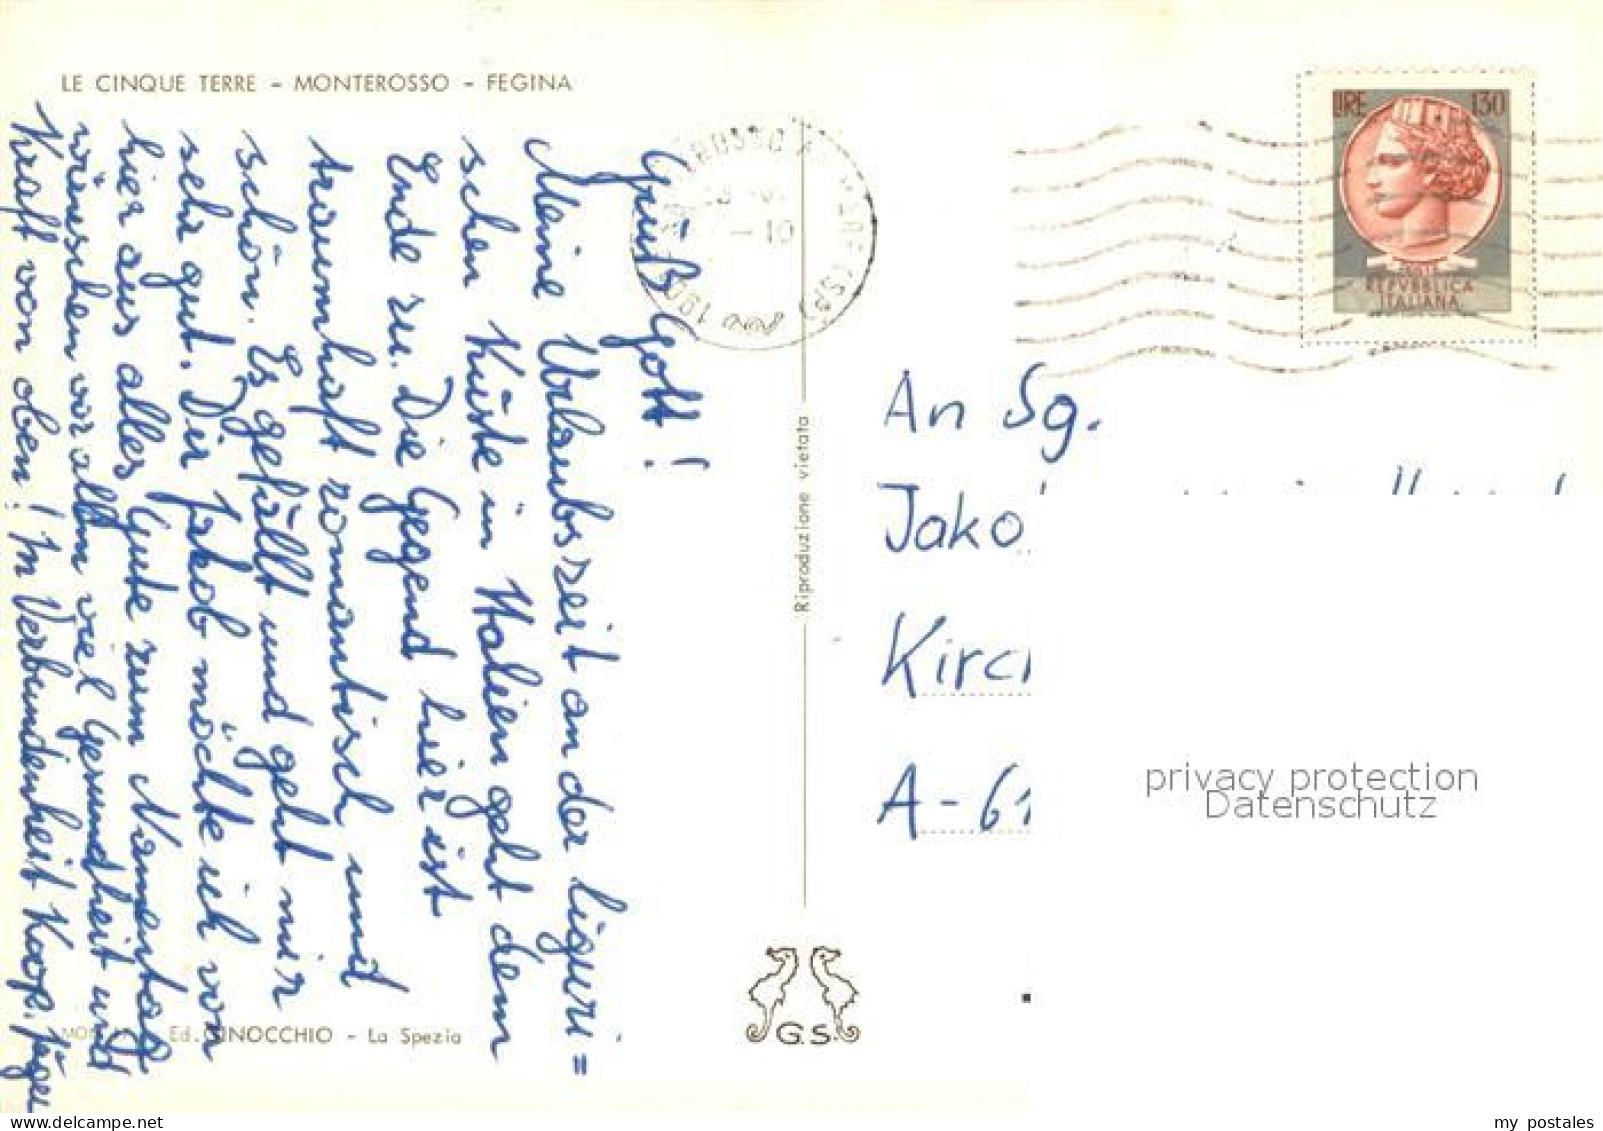 LE CINQUE TERRE – MONTEROSSO – FEGINA
Grüß Gott!
Meine Urlaubszeit an der liguri=
schen Küste in Italien geht dem
Ende zu. Die Gegend hier ist
traumhaft romantisch und
schön. Es gefällt und geht mir
sehr gut. Dir Jakob möchte ich von
hier aus alles Gute zum Namenstag
wünschen vor allem viel Gesundheit und
Kraft von oben! In Verbundenheit Koop. Jäger
Ed. GINOCCHIO – La Spezia
Riproduzione vietata
G.S.
ROSSO
10
LIRE 130
POSTE
REPVBBLICA
ITALIANA
An Sg.
Jako
Kirch
A-61
privacy protection
Datenschutz
my postales